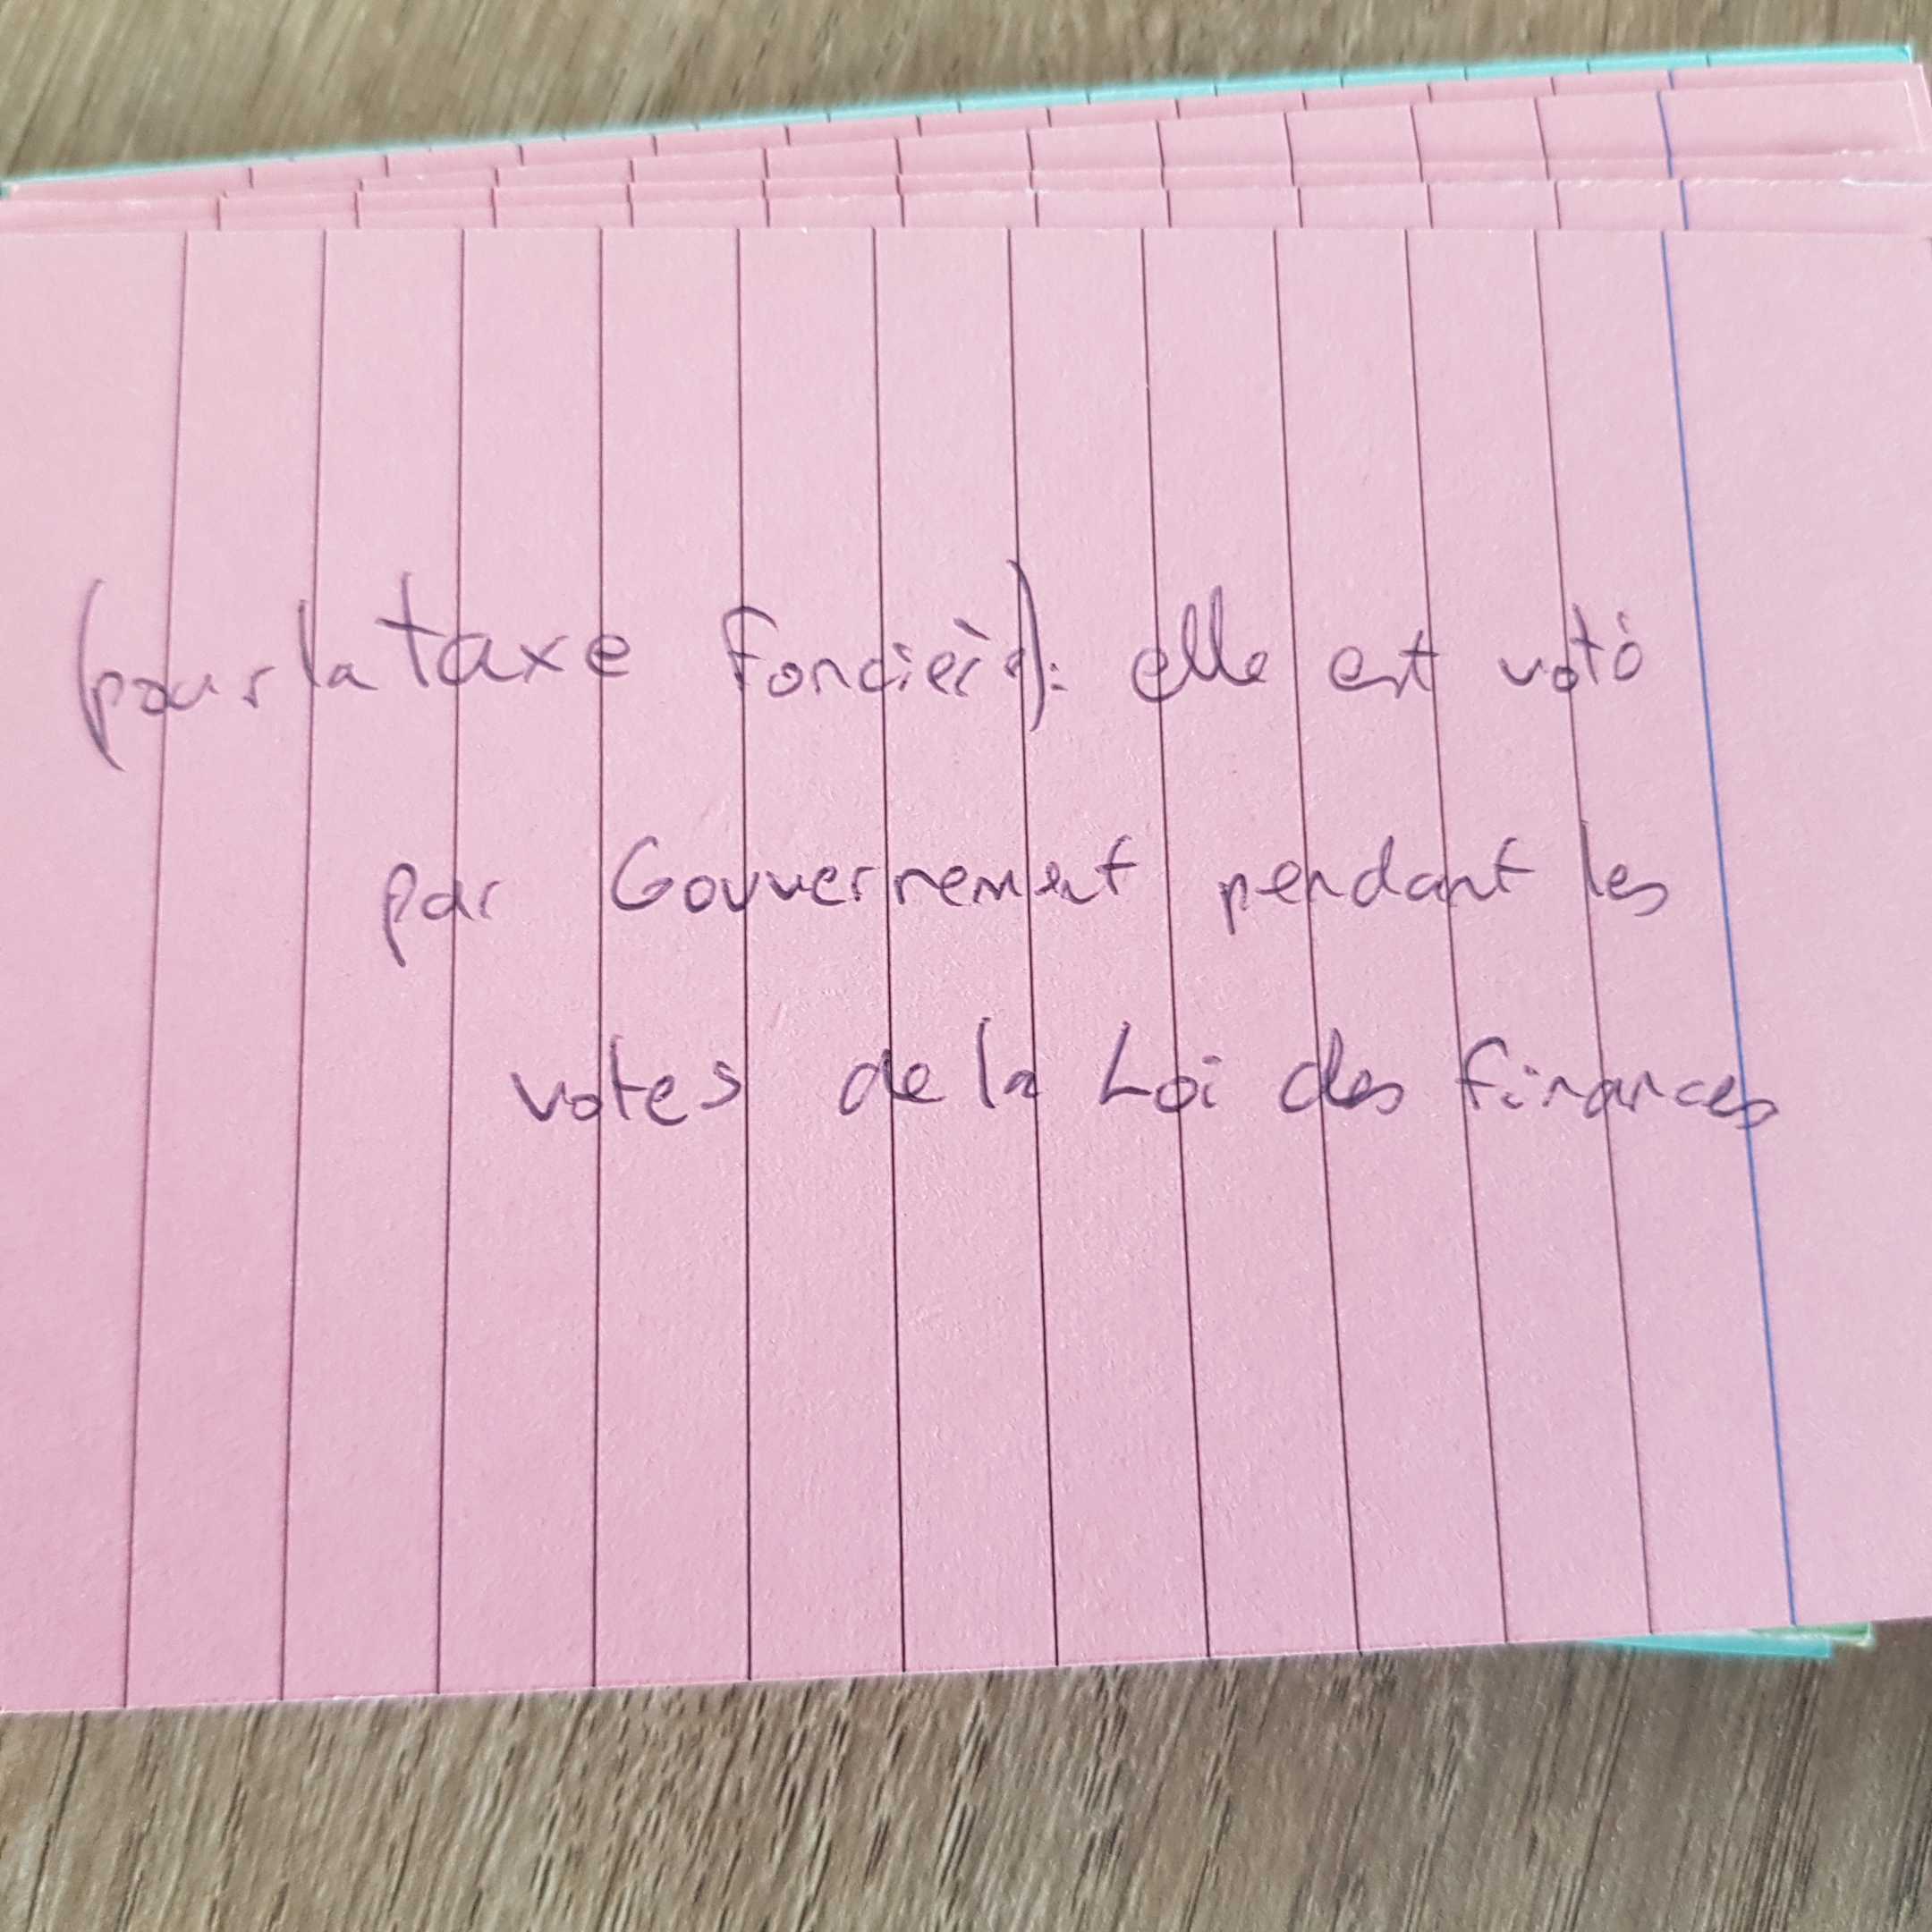 (pour la taxe foncière): elle est voté
par Gouvernement pendant les
votes de la Loi des finances